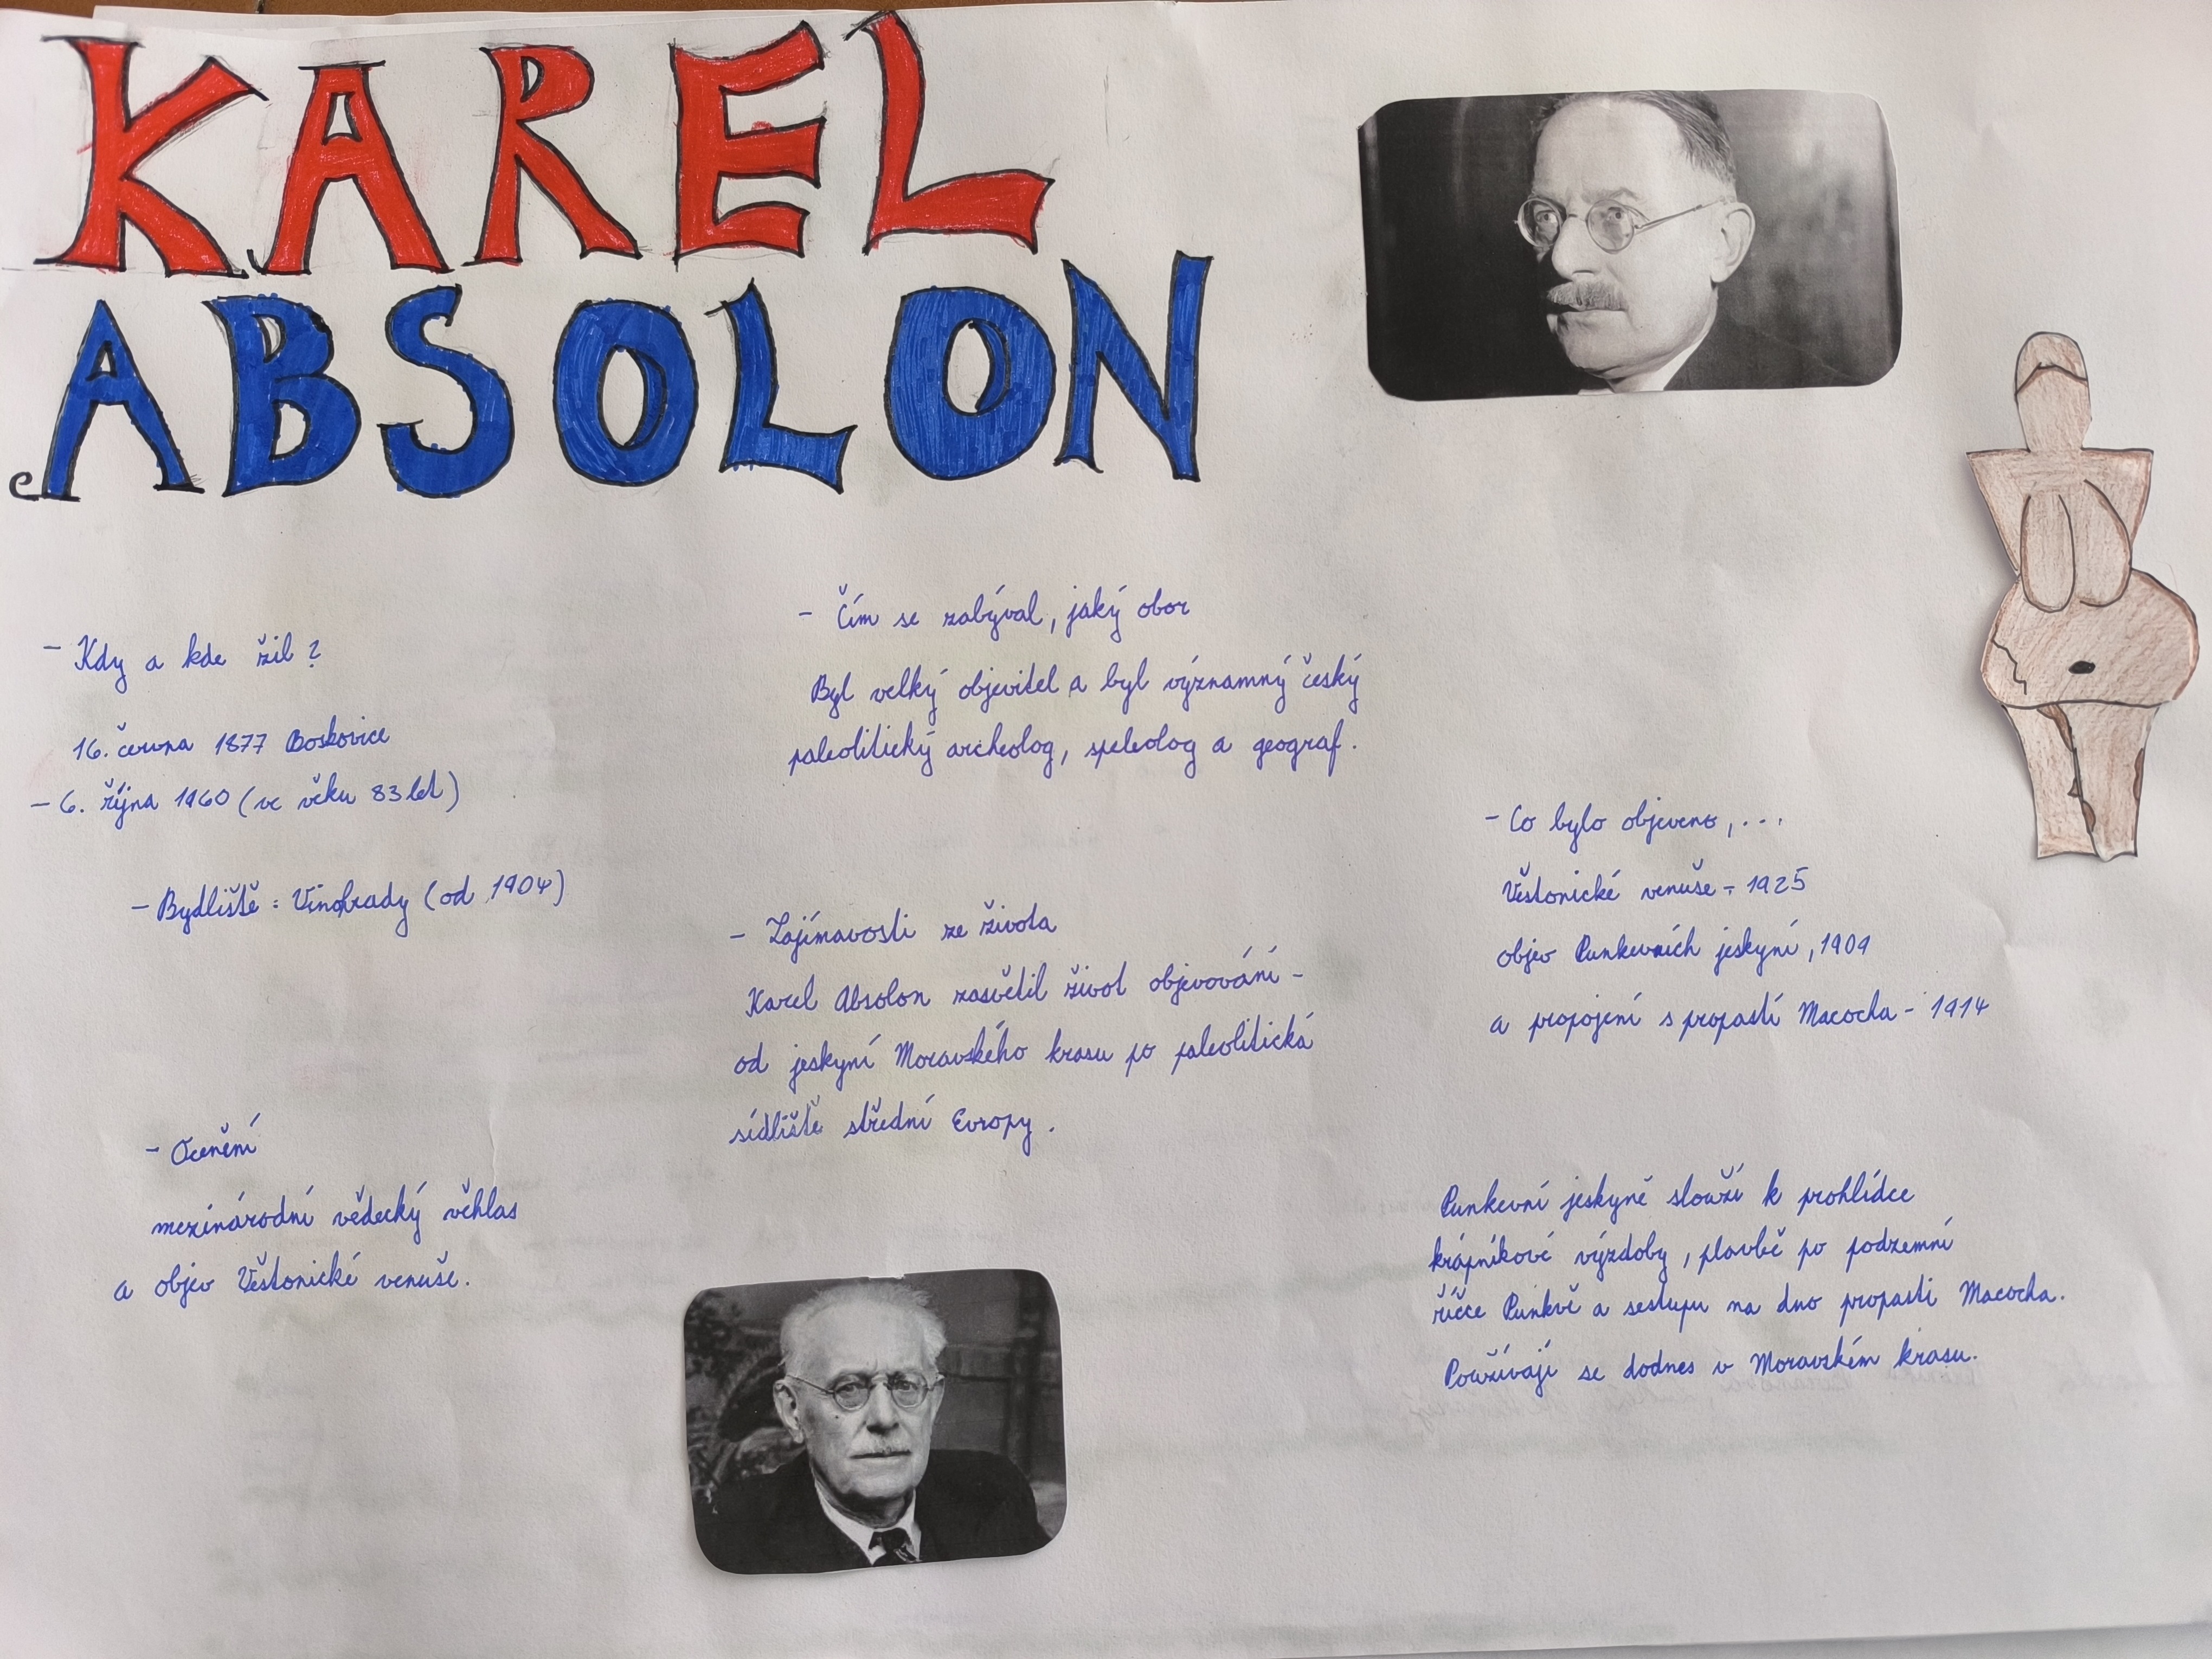 KAREL
ABSOLON
- Kdy a kde žil?
16. června 1877 Boskovice
- 6. října 1960 (ve věku 83 let)
- Bydliště: Vinohrady (od 1904)
- Ocenění
mezinárodní vědecký věhlas
a objev Věstonické venuše.
- Čím se zabýval, jaký obor
Byl velký objevitel a byl významný český
paleolitický archeolog, speleolog a geograf.
- Zajímavosti ze života
Karel Absolon zasvětil život objevování -
od jeskyní Moravského krasu po paleolitická
sídliště střední Evropy.
- Co bylo objeveno,...
Věstonické venuše - 1925
objev Punkevních jeskyní, 1909
a propojení s propastí Macocha - 1914
Punkevní jeskyně slouží k prohlídce
krápníkové výzdoby, plavbě po podzemní
říčce Punkvě a sestupu na dno propasti Macocha.
Používají se dodnes v Moravském krasu.